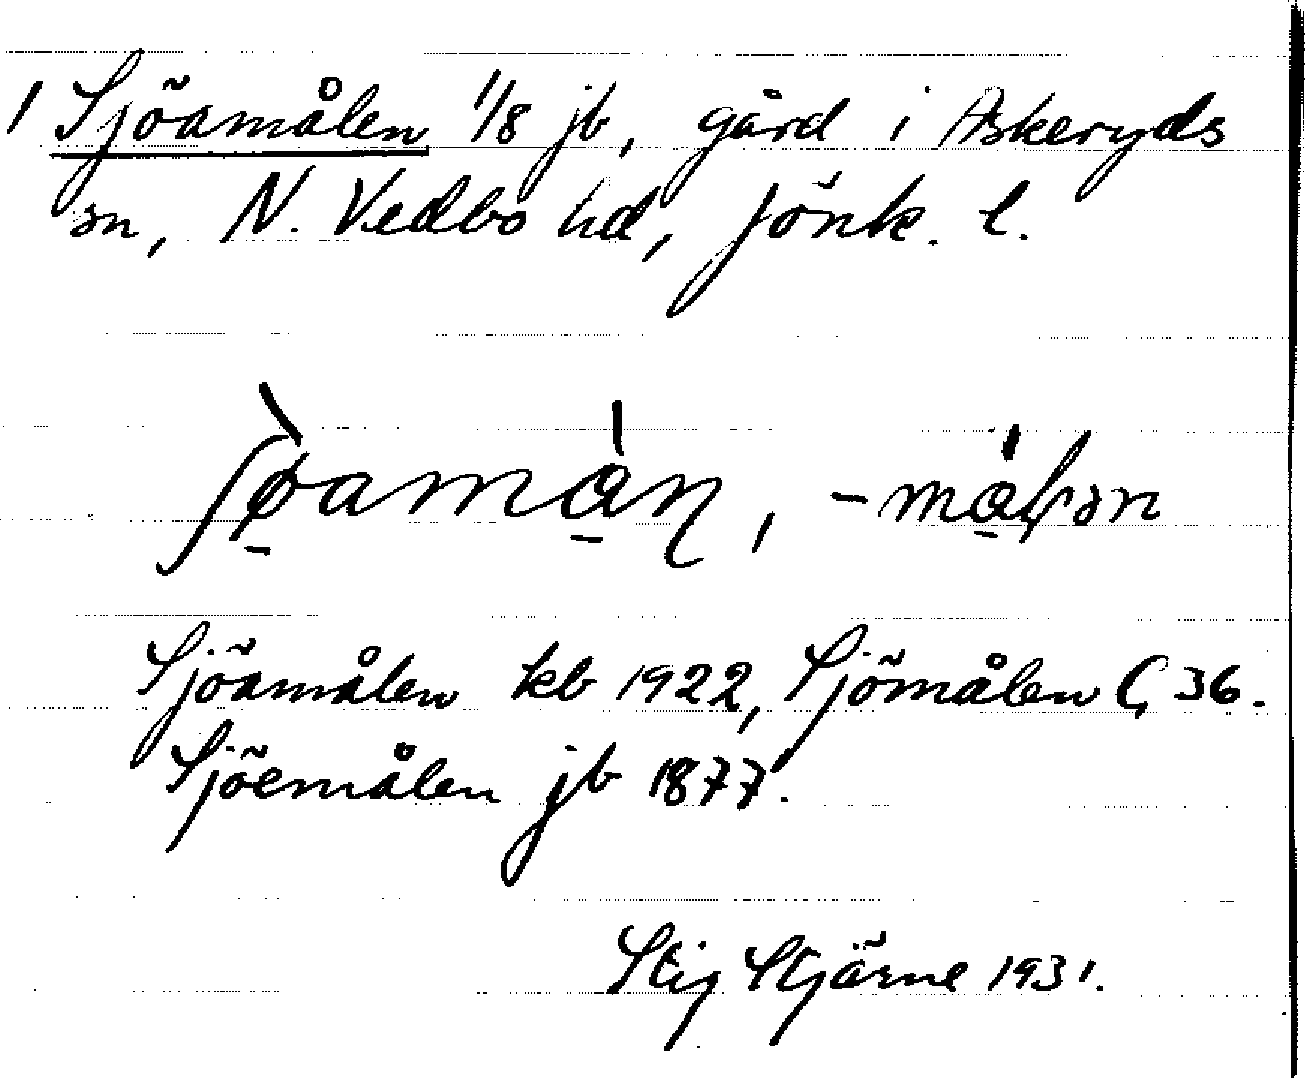 1 Sjöamålen 1/8 jb, gård i Askeryds
sn, N. Vedbo hd, Jönk. l.
Sjöamålen kb 1922, Sjömålen Ç 36.
Sjöemålen jb 1877.
Stig Stjärne 1931.